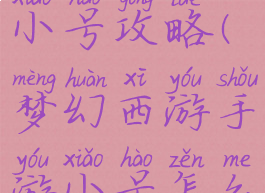 xiǎo hào gōng lüè
小号攻略(
mèng huàn xī yóu shǒu
梦幻西游手
yóu xiǎo hào zěn me
游小号怎么